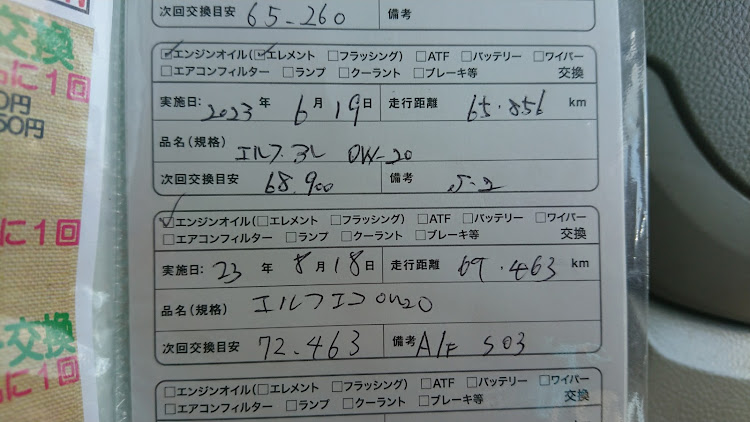 次回交換目安 65-260 備考
交換
に1回
0円
50円
に1回
交換
に1回
☑エンジンオイル(☑エレメント □フラッシング) □ATF □バッテリー □ワイパー
□エアコンフィルター □ランプ □クーラント □ブレーキ等 交換
実施日: 2023 年 6 月 19 日 走行距離 65.856 km
品名(規格) エルフ. 0W-20
次回交換目安 68.900 備考
☑エンジンオイル(□エレメント □フラッシング) □ATF □バッテリー □ワイパー
□エアコンフィルター □ランプ □クーラント □ブレーキ等 交換
実施日: 23 年 8 月 18 日 走行距離 69.463 km
品名(規格) エルフエコ 0W20
次回交換目安 72.463 備考 A/F S03
□エンジンオイル(□エレメント □フラッシング) □ATF □バッテリー □ワイパー
□エアコンフィルター □ランプ □クーラント □ブレーキ等 交換